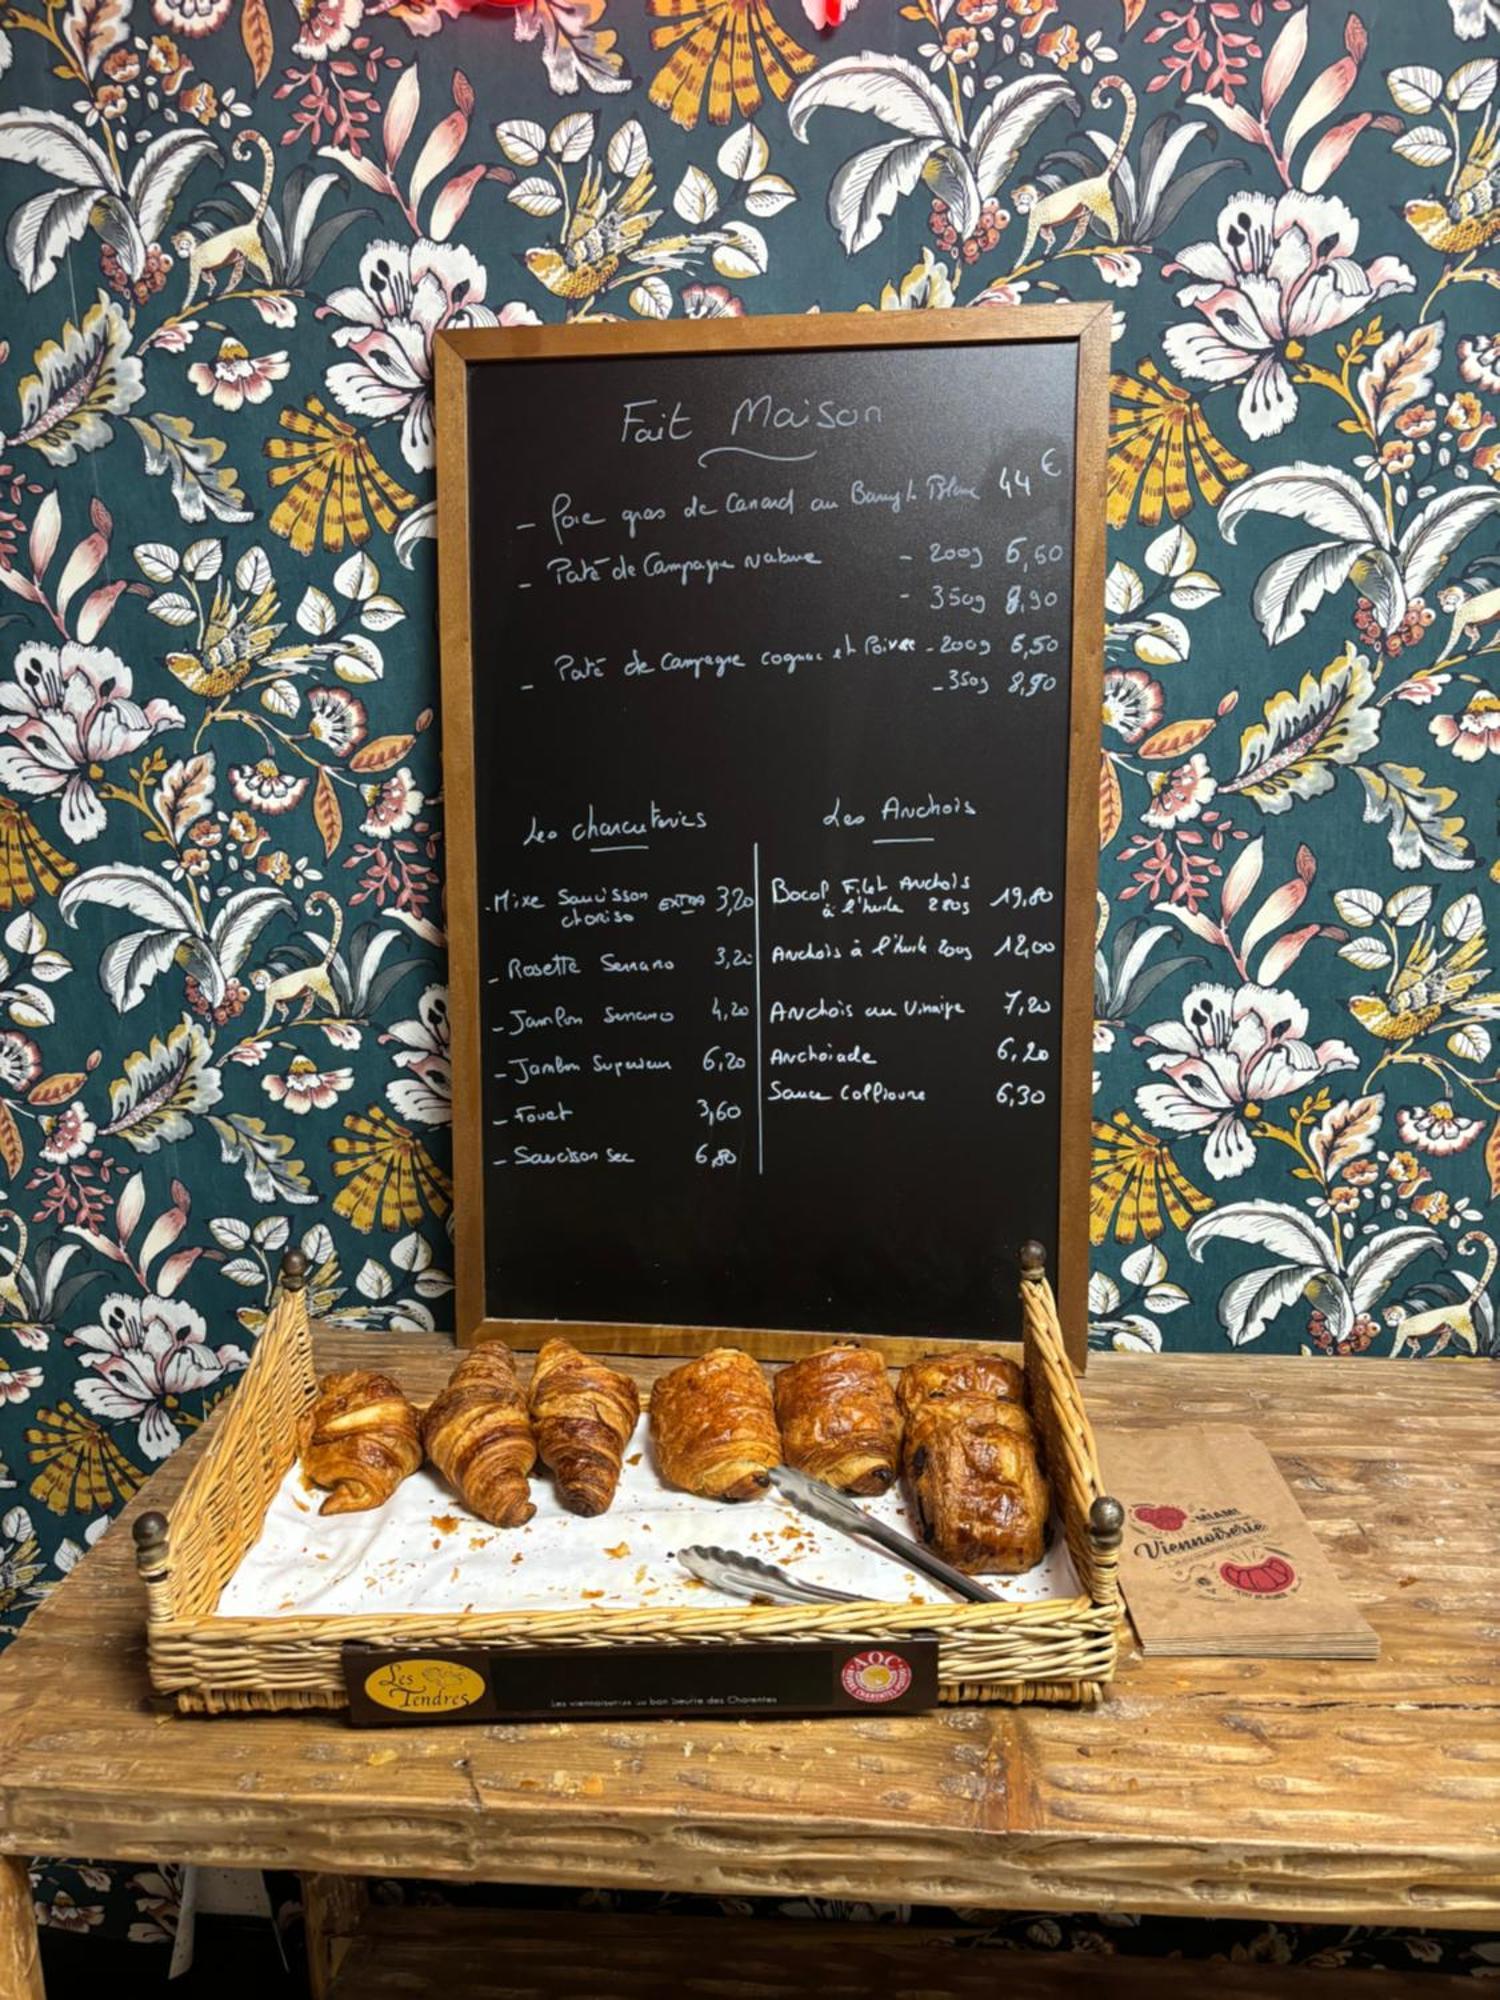 Fait Maison
- Foie gras de Canard au Banyls Blanc 44 €
- Paté de Campagne Nature - 200g 6,50
- 350g 8,90
- Paté de Campagne cognac et Poivre - 200g 6,50
- 350g 8,90
Les charcuteries
Les Anchois
- Mixe Saucisson EXTRA 3,20
choriso
- Rosette Serrano 3,20
- Jambon Serrano 4,20
- Jambon Superieur 6,20
- Fouet 3,60
- Saucisson Sec 6,80
Bocal Filet Anchois 19,80
à l'huile 280g
Anchois à l'huile 200g 12,00
Anchois au Vinaigre 7,20
Anchoiade 6,20
Sauce Collioure 6,30
MIAM!
Viennoiserie
Les
Tendres
Les viennoiseries au bon beurre des Charentes
AOC